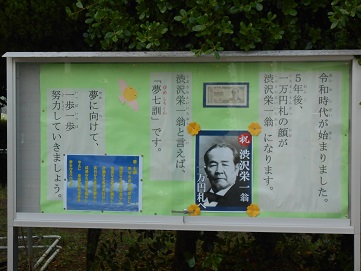 令和時代が始まりました。
5年後、
一万円札の顔が
渋沢栄一翁になります。
渋沢栄一翁と言えば、
「夢七訓」です。
夢に向けて、
一歩一歩
努力していきましょう。
祝
渋沢栄一翁
一万円札へ